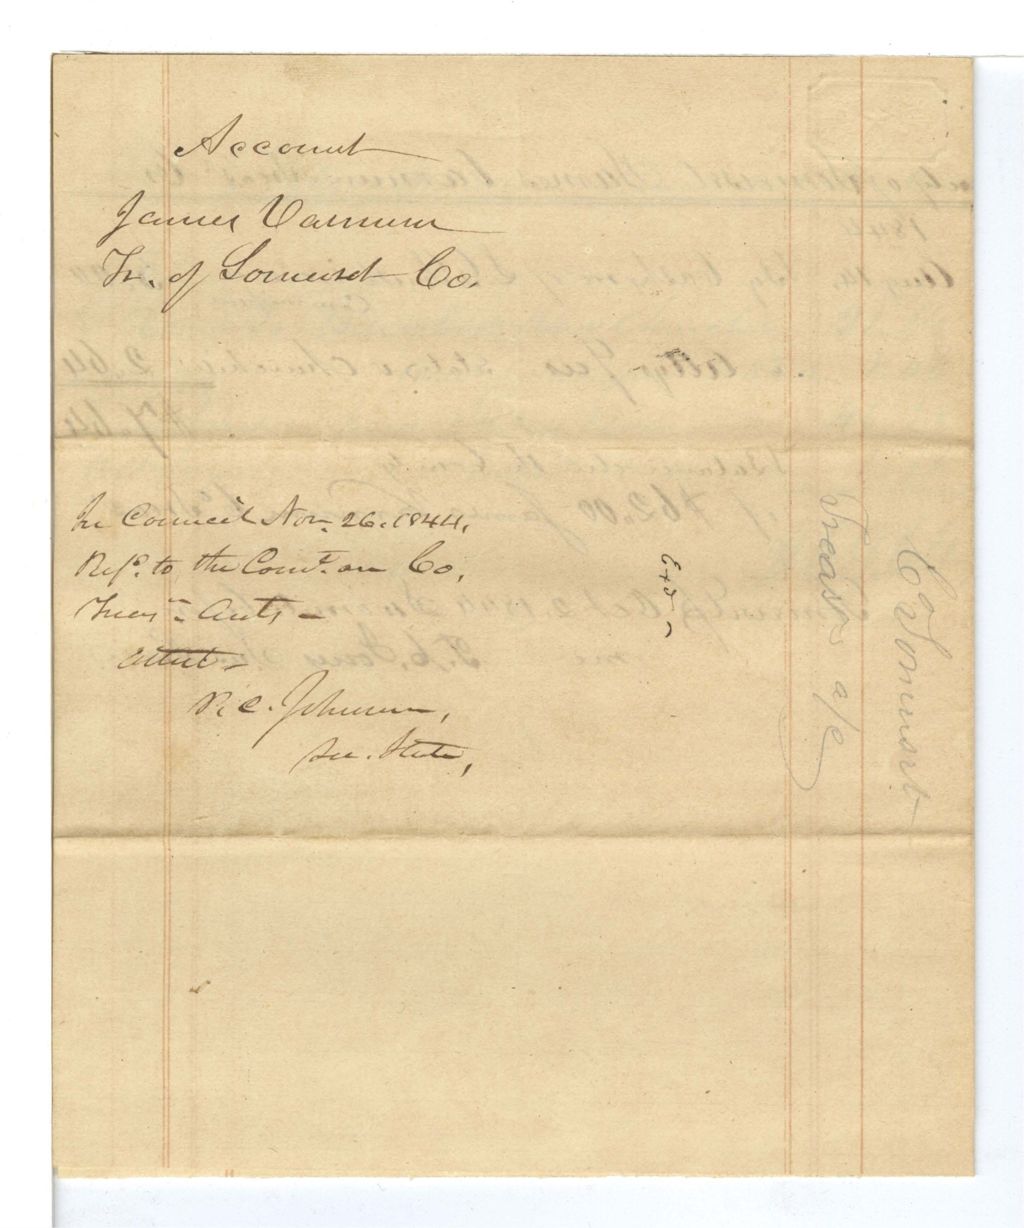 Account
James Varnum
Tr. of Somerset Co.
In Council Nov. 26. 1844.
Refd. to the Comt. on Co.
Treasrs. Accts —
Attest —
P. C. Johnson,
Sec. State,
Co Somerset
Treasr a/c